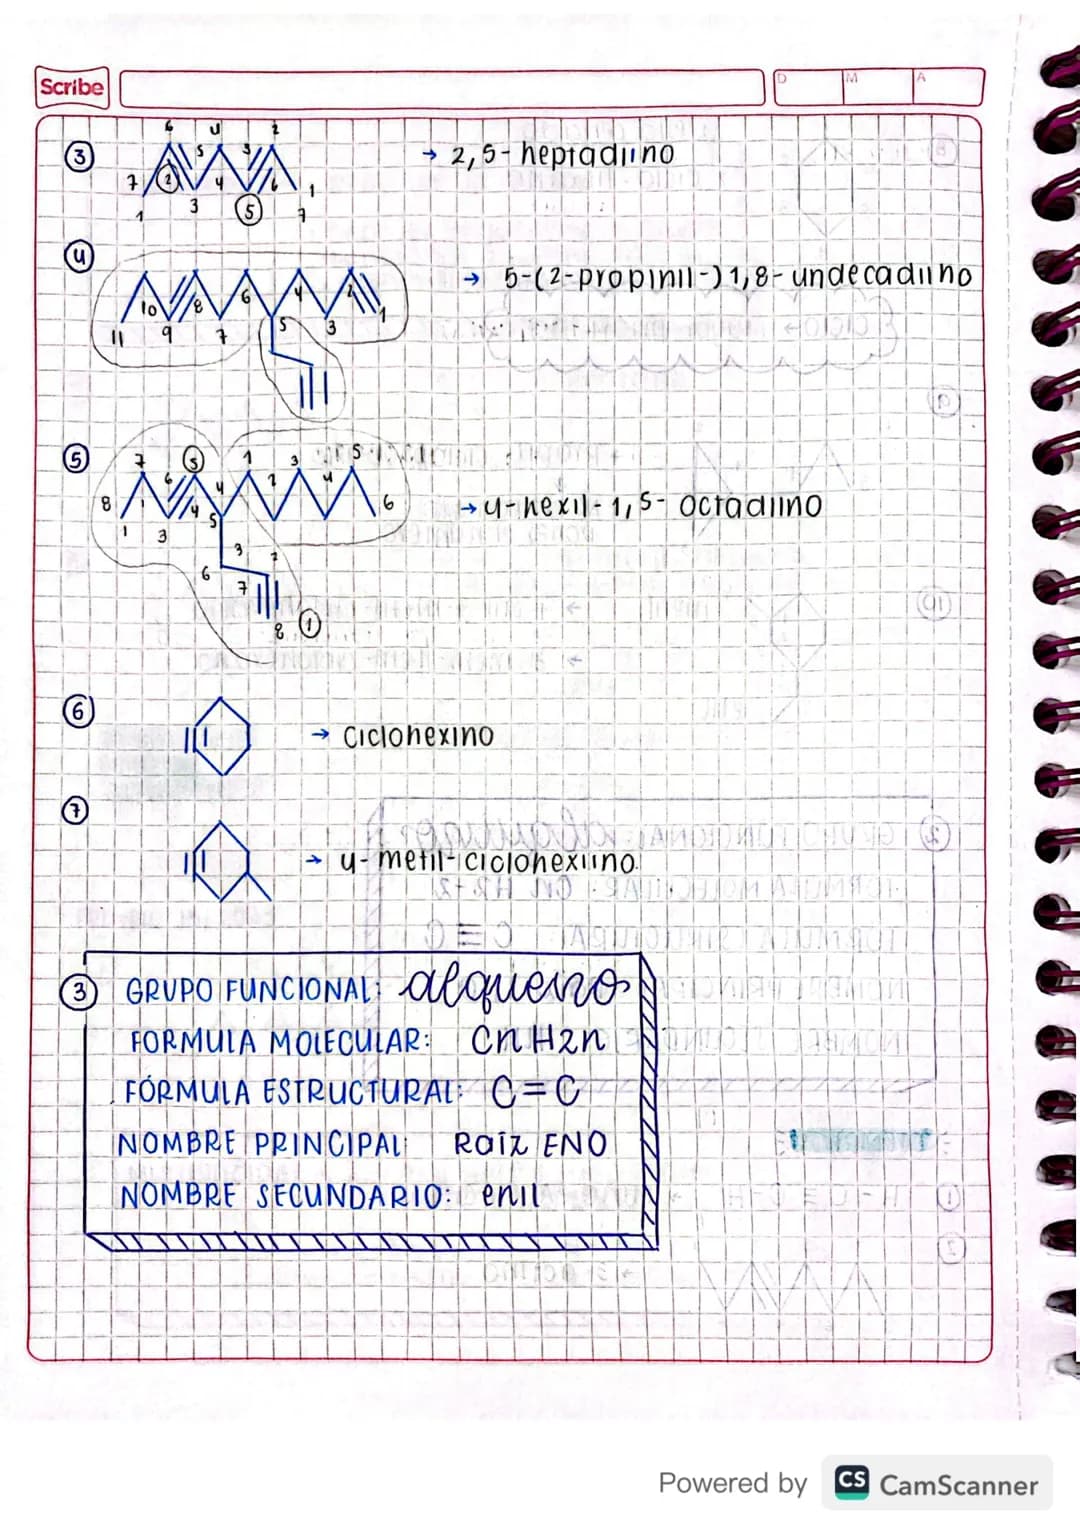 Scribe
D M A
6 4 2
③ 5 3 → 2,5-heptadiino
7 2 4 6 1
1 3 5 7
④ → 5-(2-propinil-)1,8-undecadiino
10 8 6 4 2 1
11 9 7 5 3
⑤ 7 3 1 3 5
6 4 2 4
8 4 6 → 4-hexil-1,5-octadiino
1 3 5
3 2
6 7
8 1
⑥ → Ciclohexino
⑦ → 4-metil-ciclohexiino.
③ GRUPO FUNCIONAL: alqueno
FORMULA MOLECULAR: CnH2n
FÓRMULA ESTRUCTURAL: C=C
NOMBRE PRINCIPAL: Raíz ENO
NOMBRE SECUNDARIO: enil
Powered by CS CamScanner